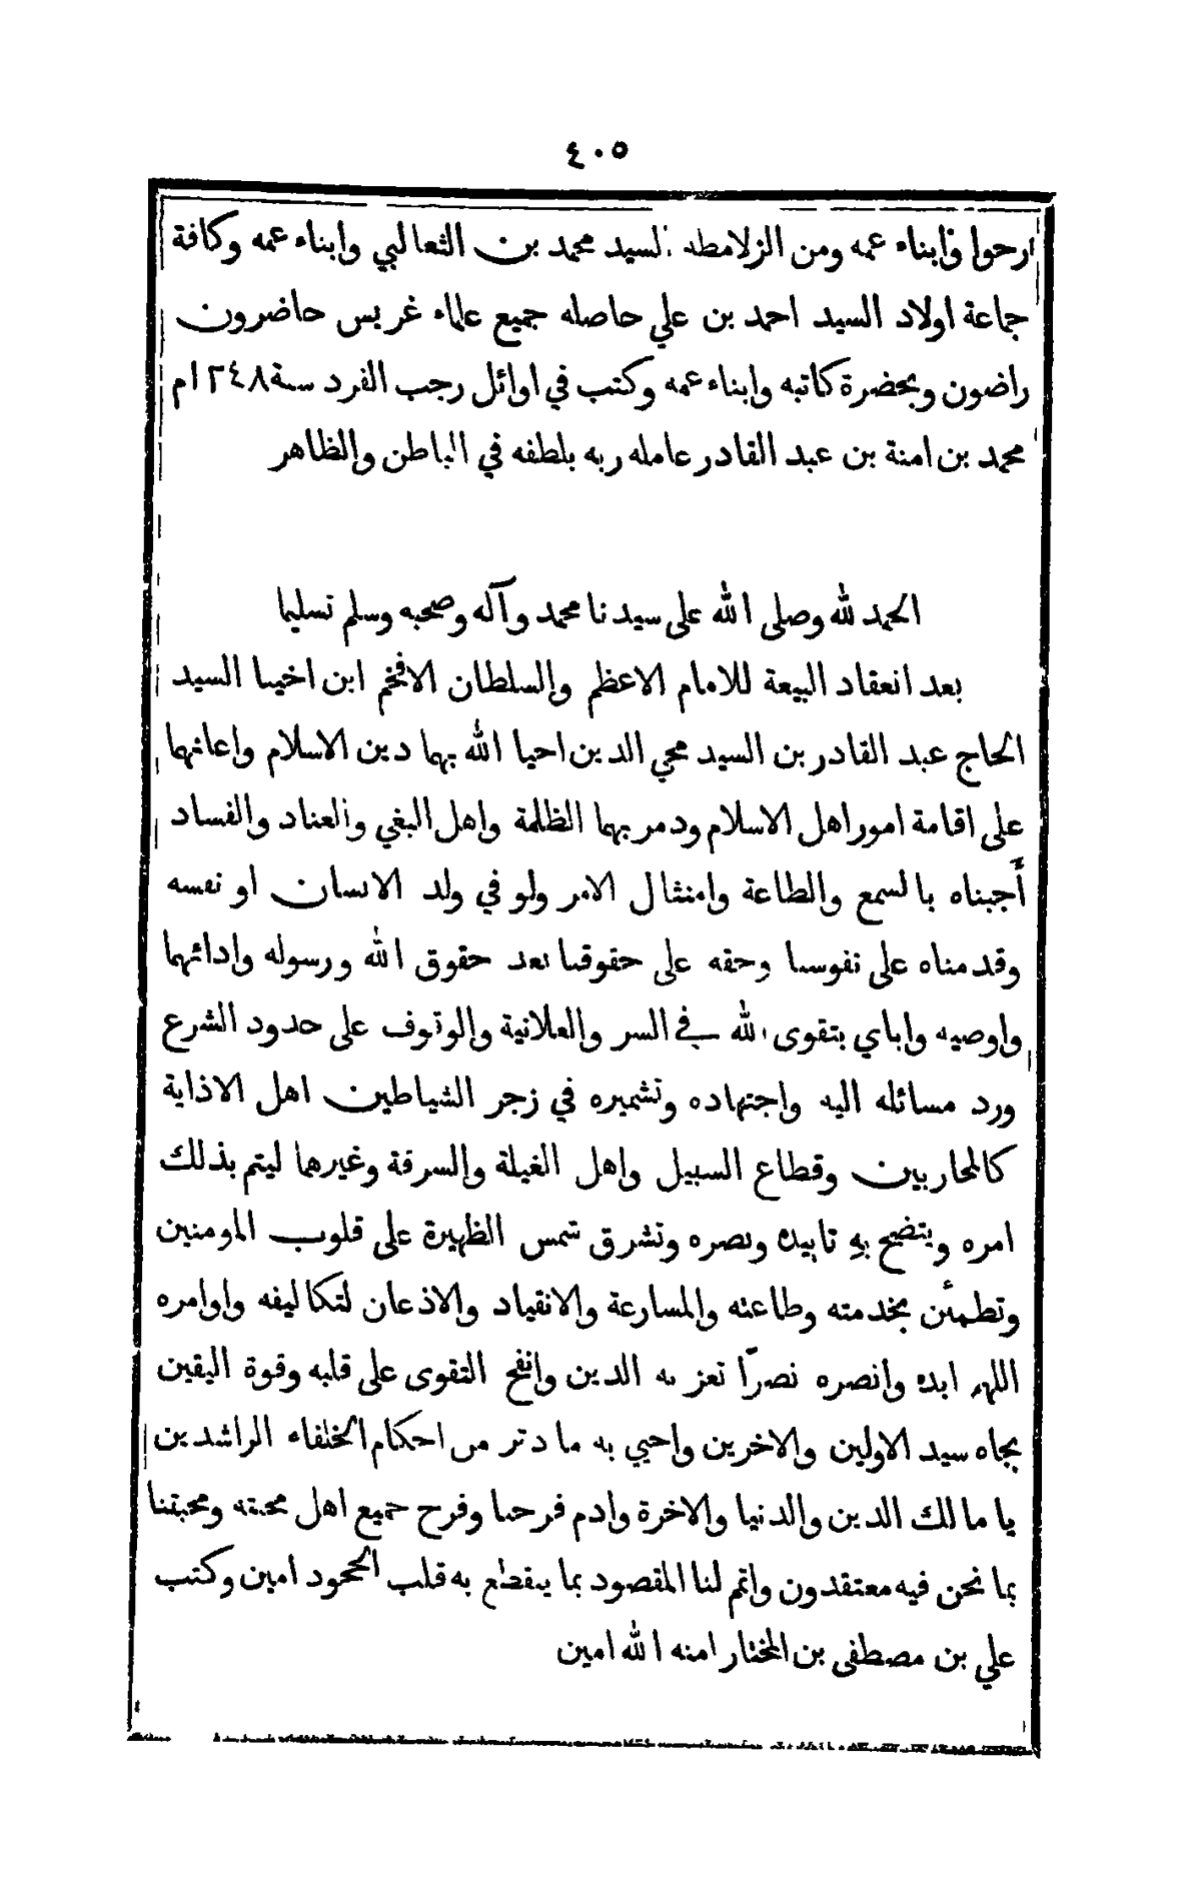 ٤٠٥
ارحوا وابناء عمه ومن الزلامطه السيد محمد بن الثعالبي وابناء عمه وكافة
جماعة اولاد السيد احمد بن علي حاصله جميع علماء غريس حاضرون
راضون وبحضرة كاتبه وابناء عمه وكتب في اوائل رجب الفرد سنة ١٢٤٨ م
محمد بن امنة بن عبد القادر عامله ربه بلطفه في الباطن والظاهر
الحمد لله وصلى الله على سيدنا محمد وآله وصحبه وسلم تسليما
بعد انعقاد البيعة للامام الاعظم والسلطان الافخم ابن اخينا السيد
الحاج عبد القادر بن السيد محي الدين احيا الله بهما دين الاسلام واعانهما
على اقامة امور اهل الاسلام ودمر بهما الظلمة واهل البغي والعناد والفساد
أجبناه بالسمع والطاعة وامتثال الامر ولو في ولد الانسان او نفسه
وقدمناه على نفوسنا وحقه على حقوقنا بعد حقوق الله ورسوله وادائهما
واوصيه واياي بتقوى الله في السر والعلانية والوقوف على حدود الشرع
ورد مسائله اليه واجتهاده وتشميره في زجر الشياطين اهل الاذاية
كالمحاربين وقطاع السبيل واهل الغيلة والسرقة وغيرهما ليتم بذلك
امره ويتضح به تاييده ونصره وتشرق شمس الظهيرة على قلوب المومنين
وتطمئن بخدمته وطاعته والمسارعة والانقياد والاذعان لتكاليفه واوامره
اللهم ايده وانصره نصرًا تعز به الدين وانفح التقوى على قلبه وقوة اليقين
بجاه سيد الاولين والاخرين واحيي به ما دثر من احكام الخلفاء الراشدين
يا مالك الدين والدنيا والاخرة وادم فرحنا وفرح جميع اهل محبته ومحبتنا
بما نحن فيه معتقدون واتم لنا المقصود بما ينقطع به قلب الححود امين وكتب
علي بن مصطفى بن المختار امنه الله امين